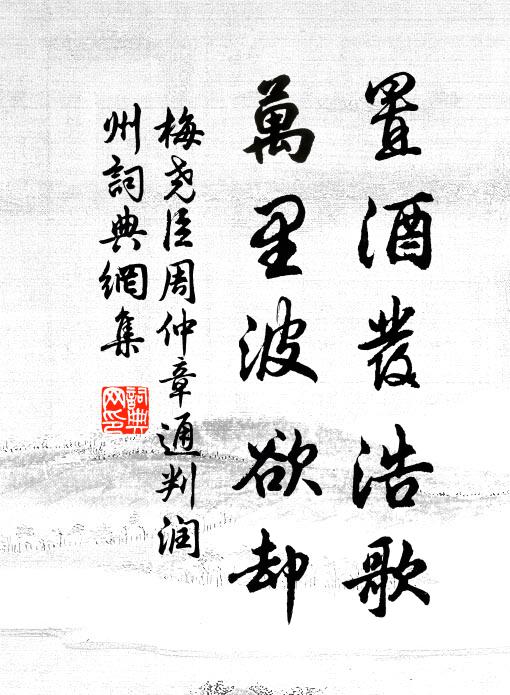 置酒發浩歌
萬里波欲却
梅尧臣周仲章通判润
州詞典網集
詞典网印